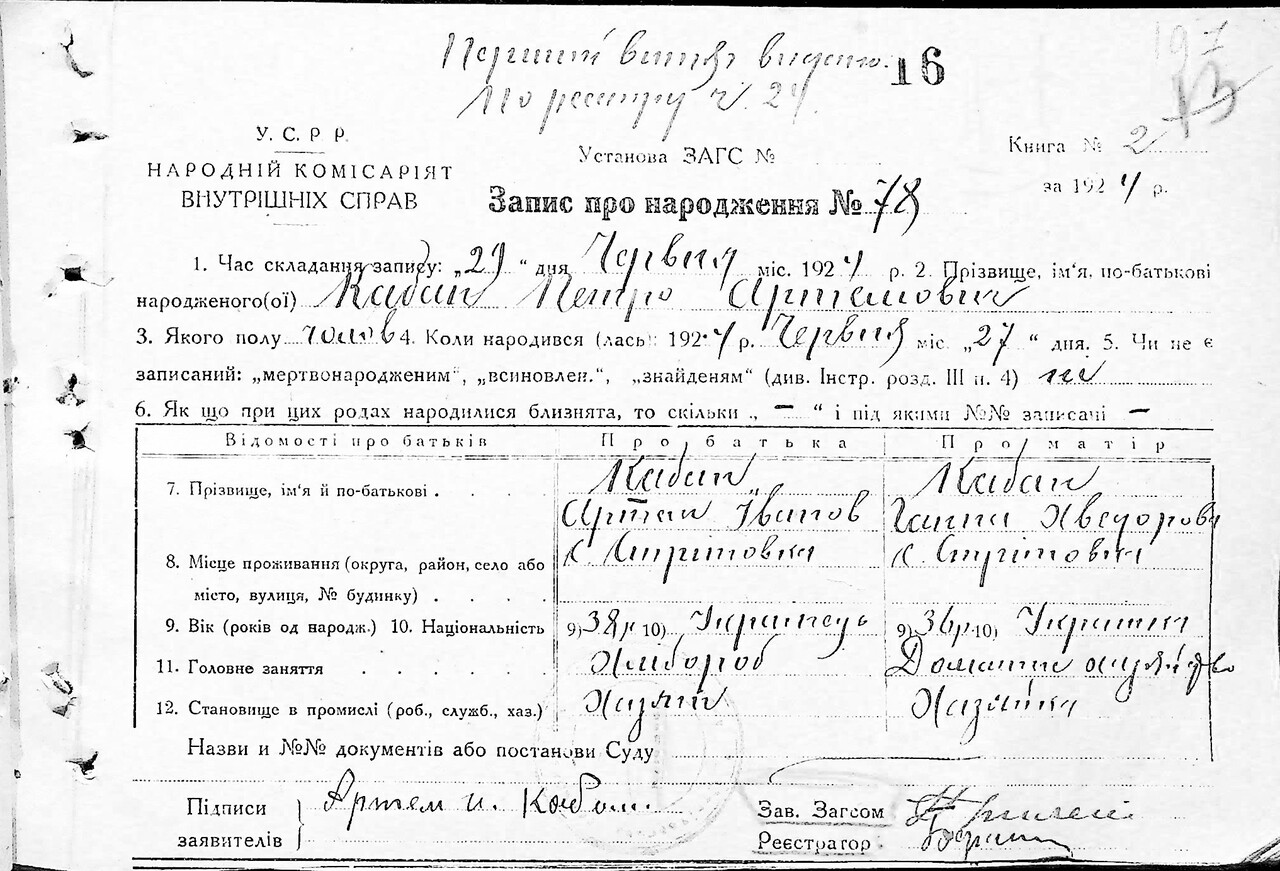 Перший витяг видано. 16
По реєстру ч. 24.
У. С. Р. Р.
НАРОДНІЙ КОМІСАРІЯТ
ВНУТРІШНІХ СПРАВ
Установа ЗАГС №
Книга № 2
за 1924 р.
Запис про народження № 78
1. Час складання запису: „29 “ дня Червня міс. 1924 р. 2. Прізвище, ім'я, по-батькові
народженого(ої) Кабан Петро Артемович
3. Якого полу чолов 4. Коли народився (лась): 1924 р. Червня міс. „27 “ дня. 5. Чи не є
записаний: „мертвонародженим“, „всиновлен.“, „знайденям“ (див. Інстр. розд. III п. 4) ні
6. Як що при цих родах народилися близнята, то скільки „ — “ і під якими №№ записачі —
Відомості про батьків Про батька Про матір
7. Прізвище, ім'я й по-батькові . . . . Кабан Кабан
Артем Іванов Ганна Хведорова
8. Місце проживання (округа, район, село або с. Стрітовка с. Стрітовка
місто, вулиця, № будинку) . . . .
9. Вік (років од народж.) 10. Національність 9) 38р 10) Українець 9) 36р 10) Українка
11. Головне заняття . . . . . Хлібороб Домашнє хазяйство
12. Становище в промислі (роб., служб., хаз.) Хазяїн Хазяйка
Назви и №№ документів або постанови Суду
Підписи
заявителів
Артем И. Кабан.
Зав. Загсом
Реєстратор